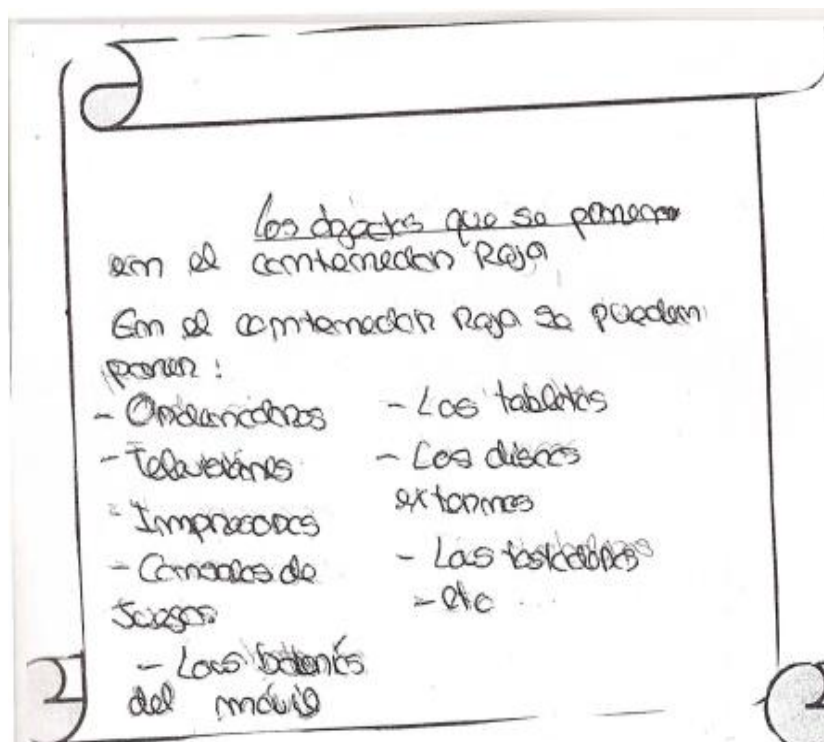 Los objectos que se ponen
en el contenedor Rojo
En el contenedor Rojo se pueden
poner :
- Ordenadores
- Televisiones
- Impresoras
- Consolas de
Juegos
- Las baterías
del móvil
- Las tabletas
- Los discos
externos
- Las
- etc ...